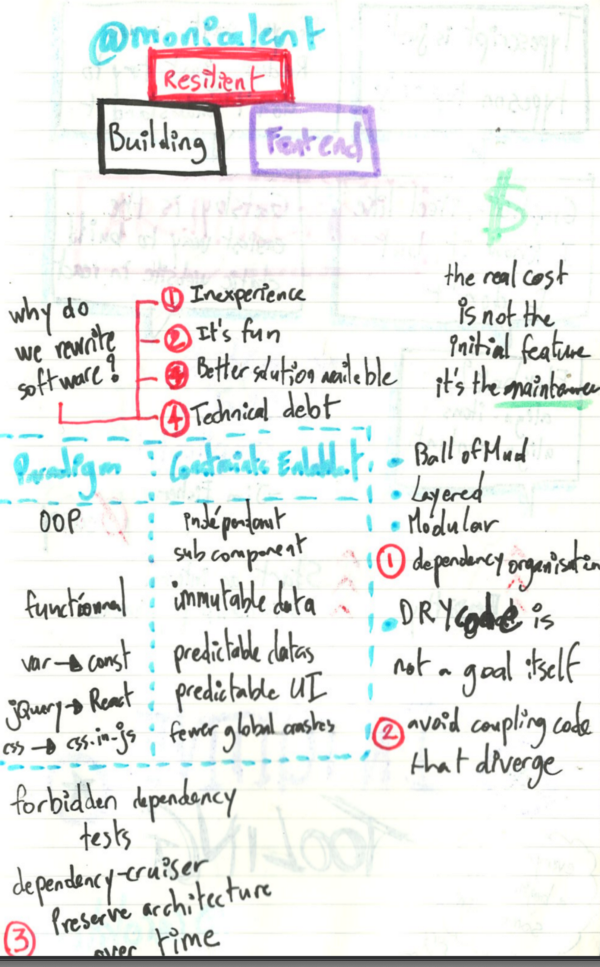 @monicalent
Resilient
Building
Frontend
$
why do
we rewrite
software?
① Inexperience
② It's fun
③ Better solution available
④ Technical debt
the real cost
is not the
initial feature
it's the maintenance
Paradigm
Constraints Enabled
OOP
indépendant
sub component
functionnal
immutable data
var → const
predictable datas
jQuery → React
predictable UI
css → css-in-js
fewer global crashes
• Ball of Mud
• Layered
• Modular
① dependency organisation
• DRY code is
not a goal itself
② avoid coupling code
that diverge
forbidden dependency
tests
dependency-cruiser
③ Preserve architecture
over time